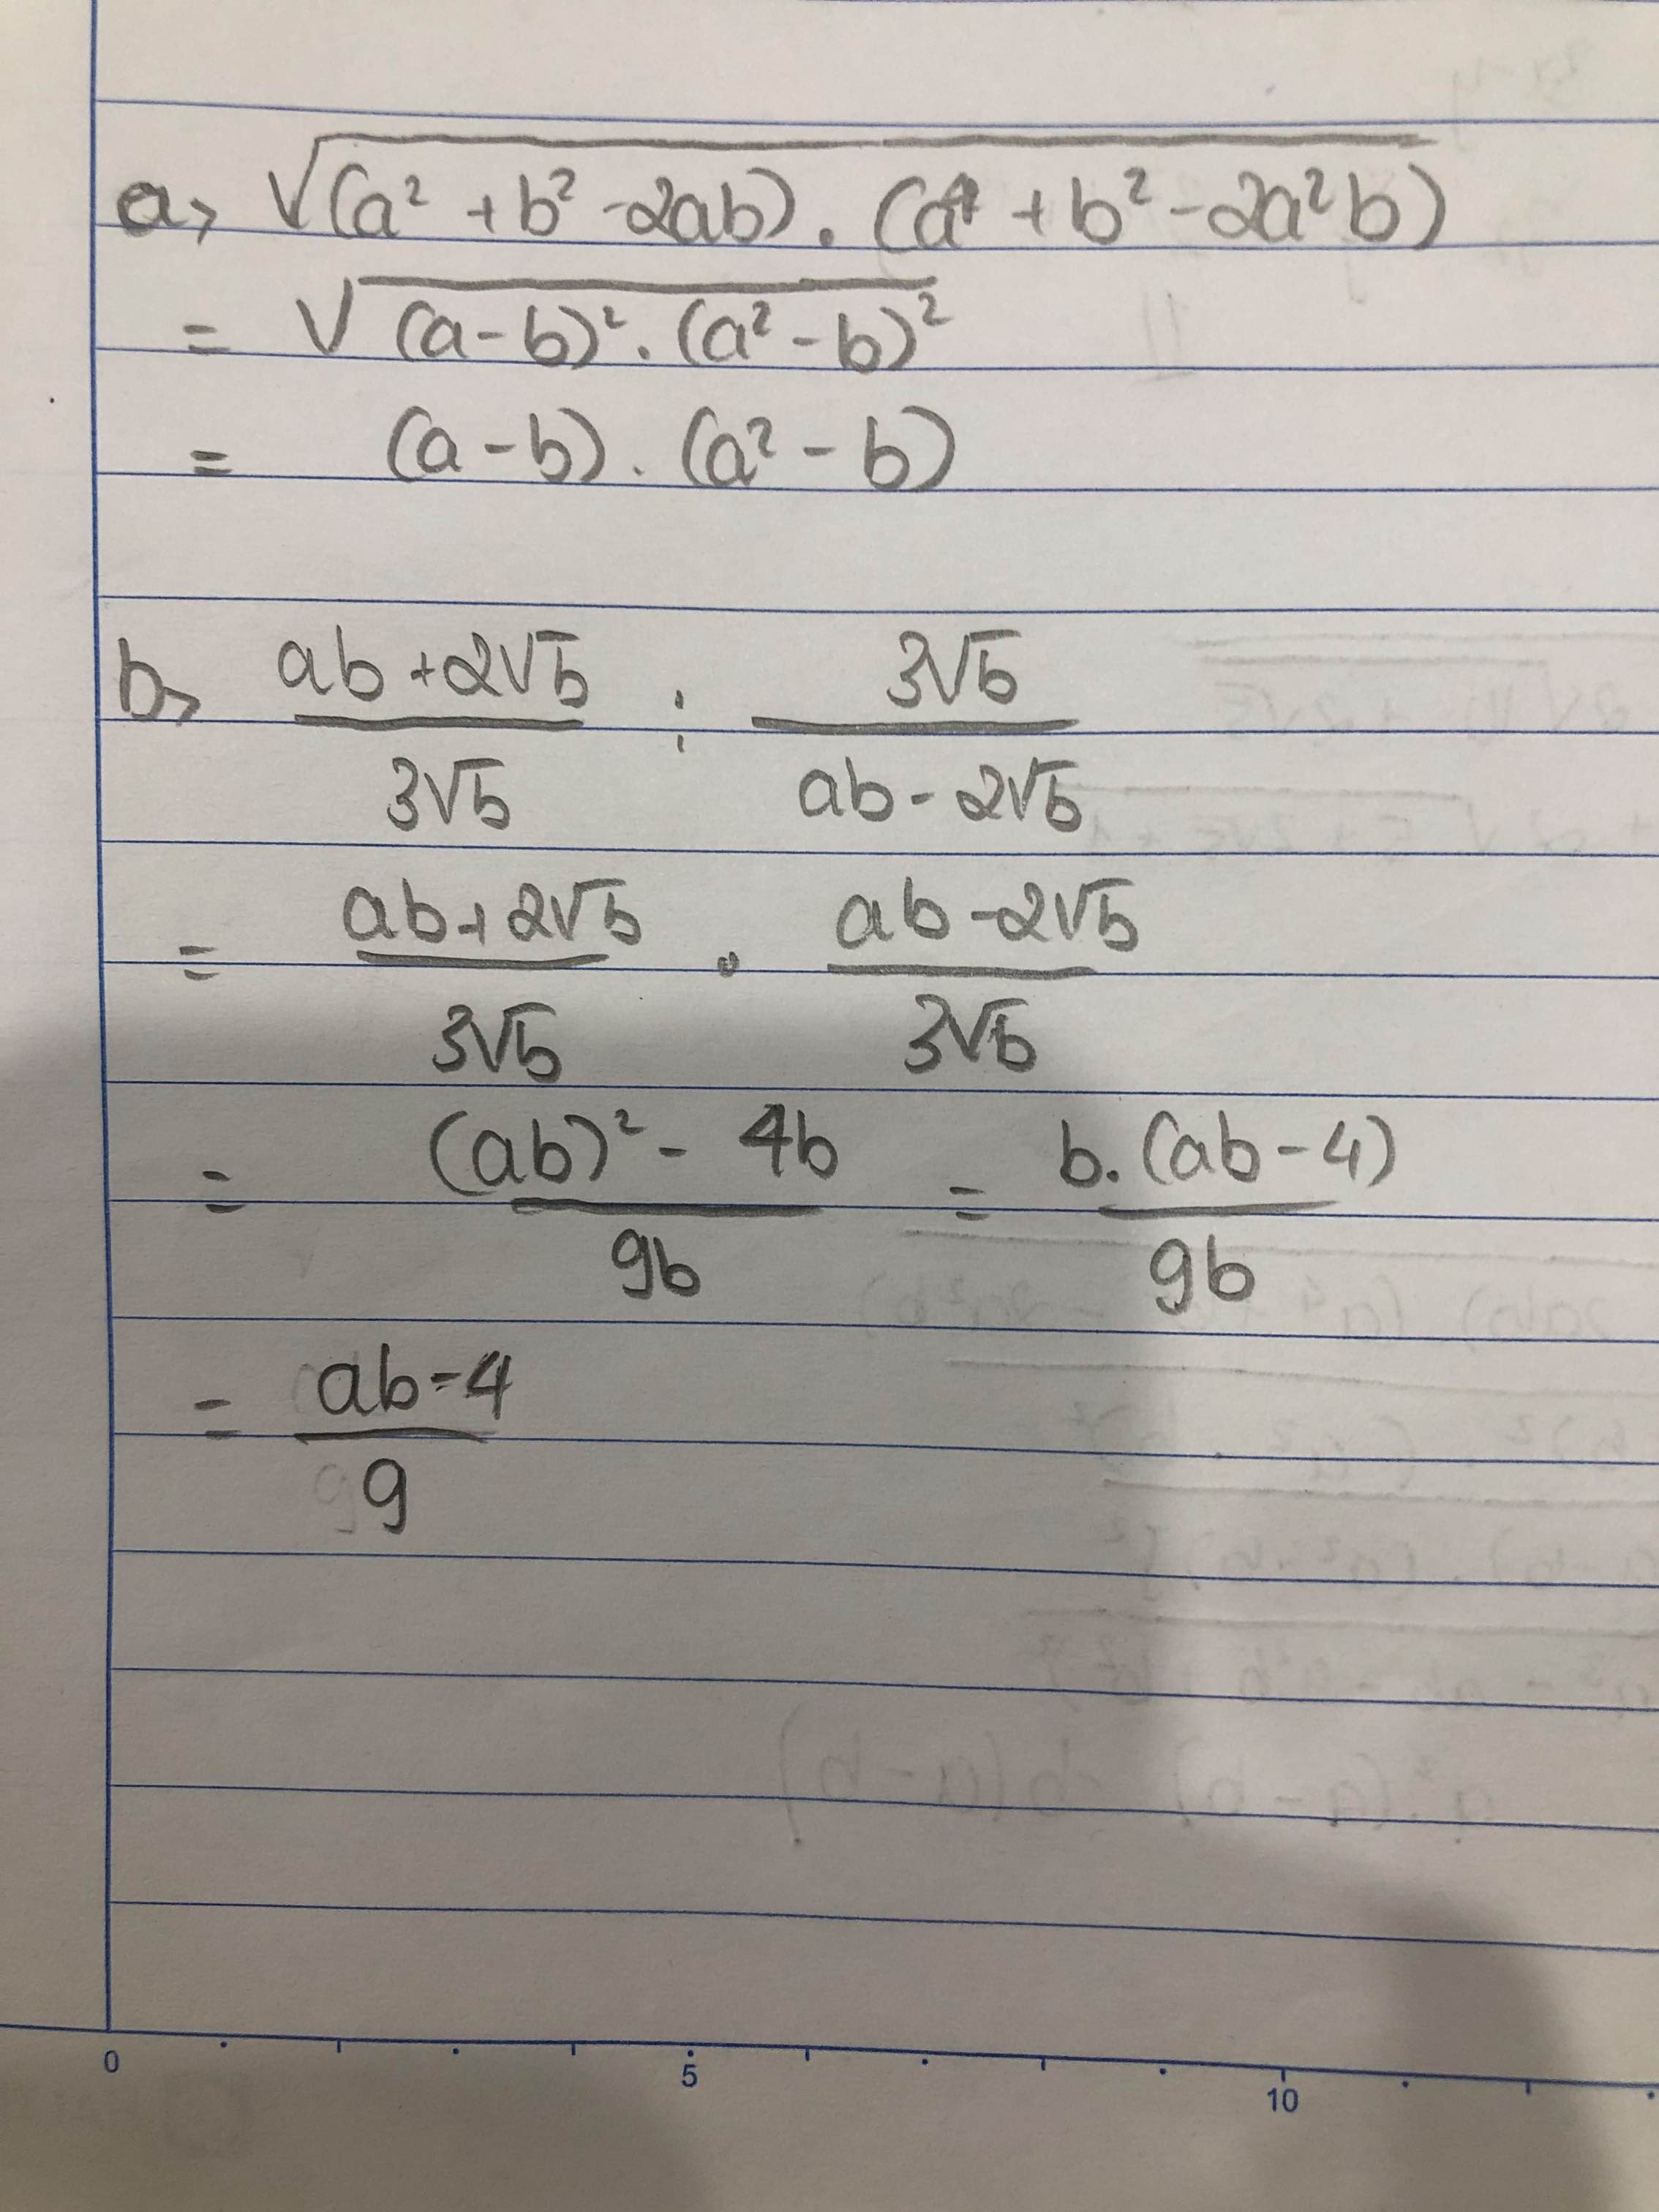 a, √(a² + b² - 2ab) . (a⁴ + b² - 2a²b)
= √(a - b)² . (a² - b)²
= (a - b) . (a² - b)
b, (ab + 2√b)/(3√b) : (3√b)/(ab - 2√b)
= (ab + 2√b)/(3√b) . (ab - 2√b)/(3√b)
= ((ab)² - 4b)/(9b) = (b . (ab - 4))/(9b)
= (ab - 4)/9
0 5 10